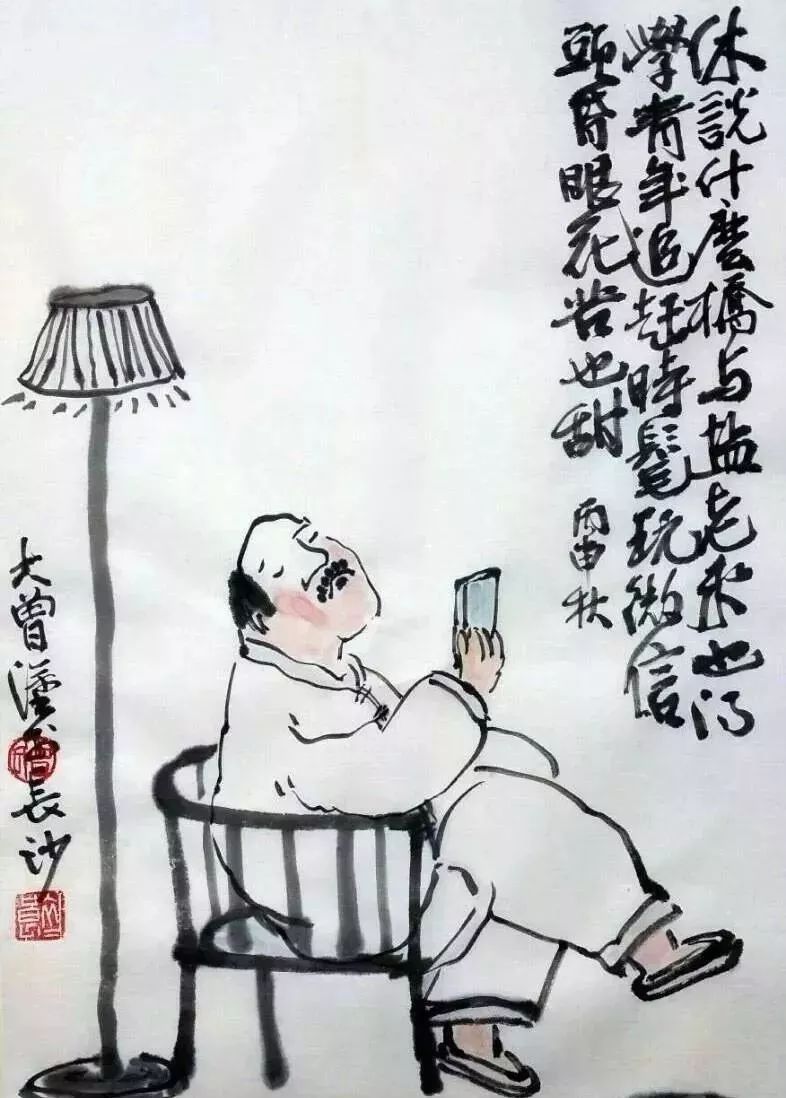 休說什麽橋与盐老来也得
學青年追赶時髦玩微信
頭昏眼花苦也甜
丙申秋
大曾漫画長沙